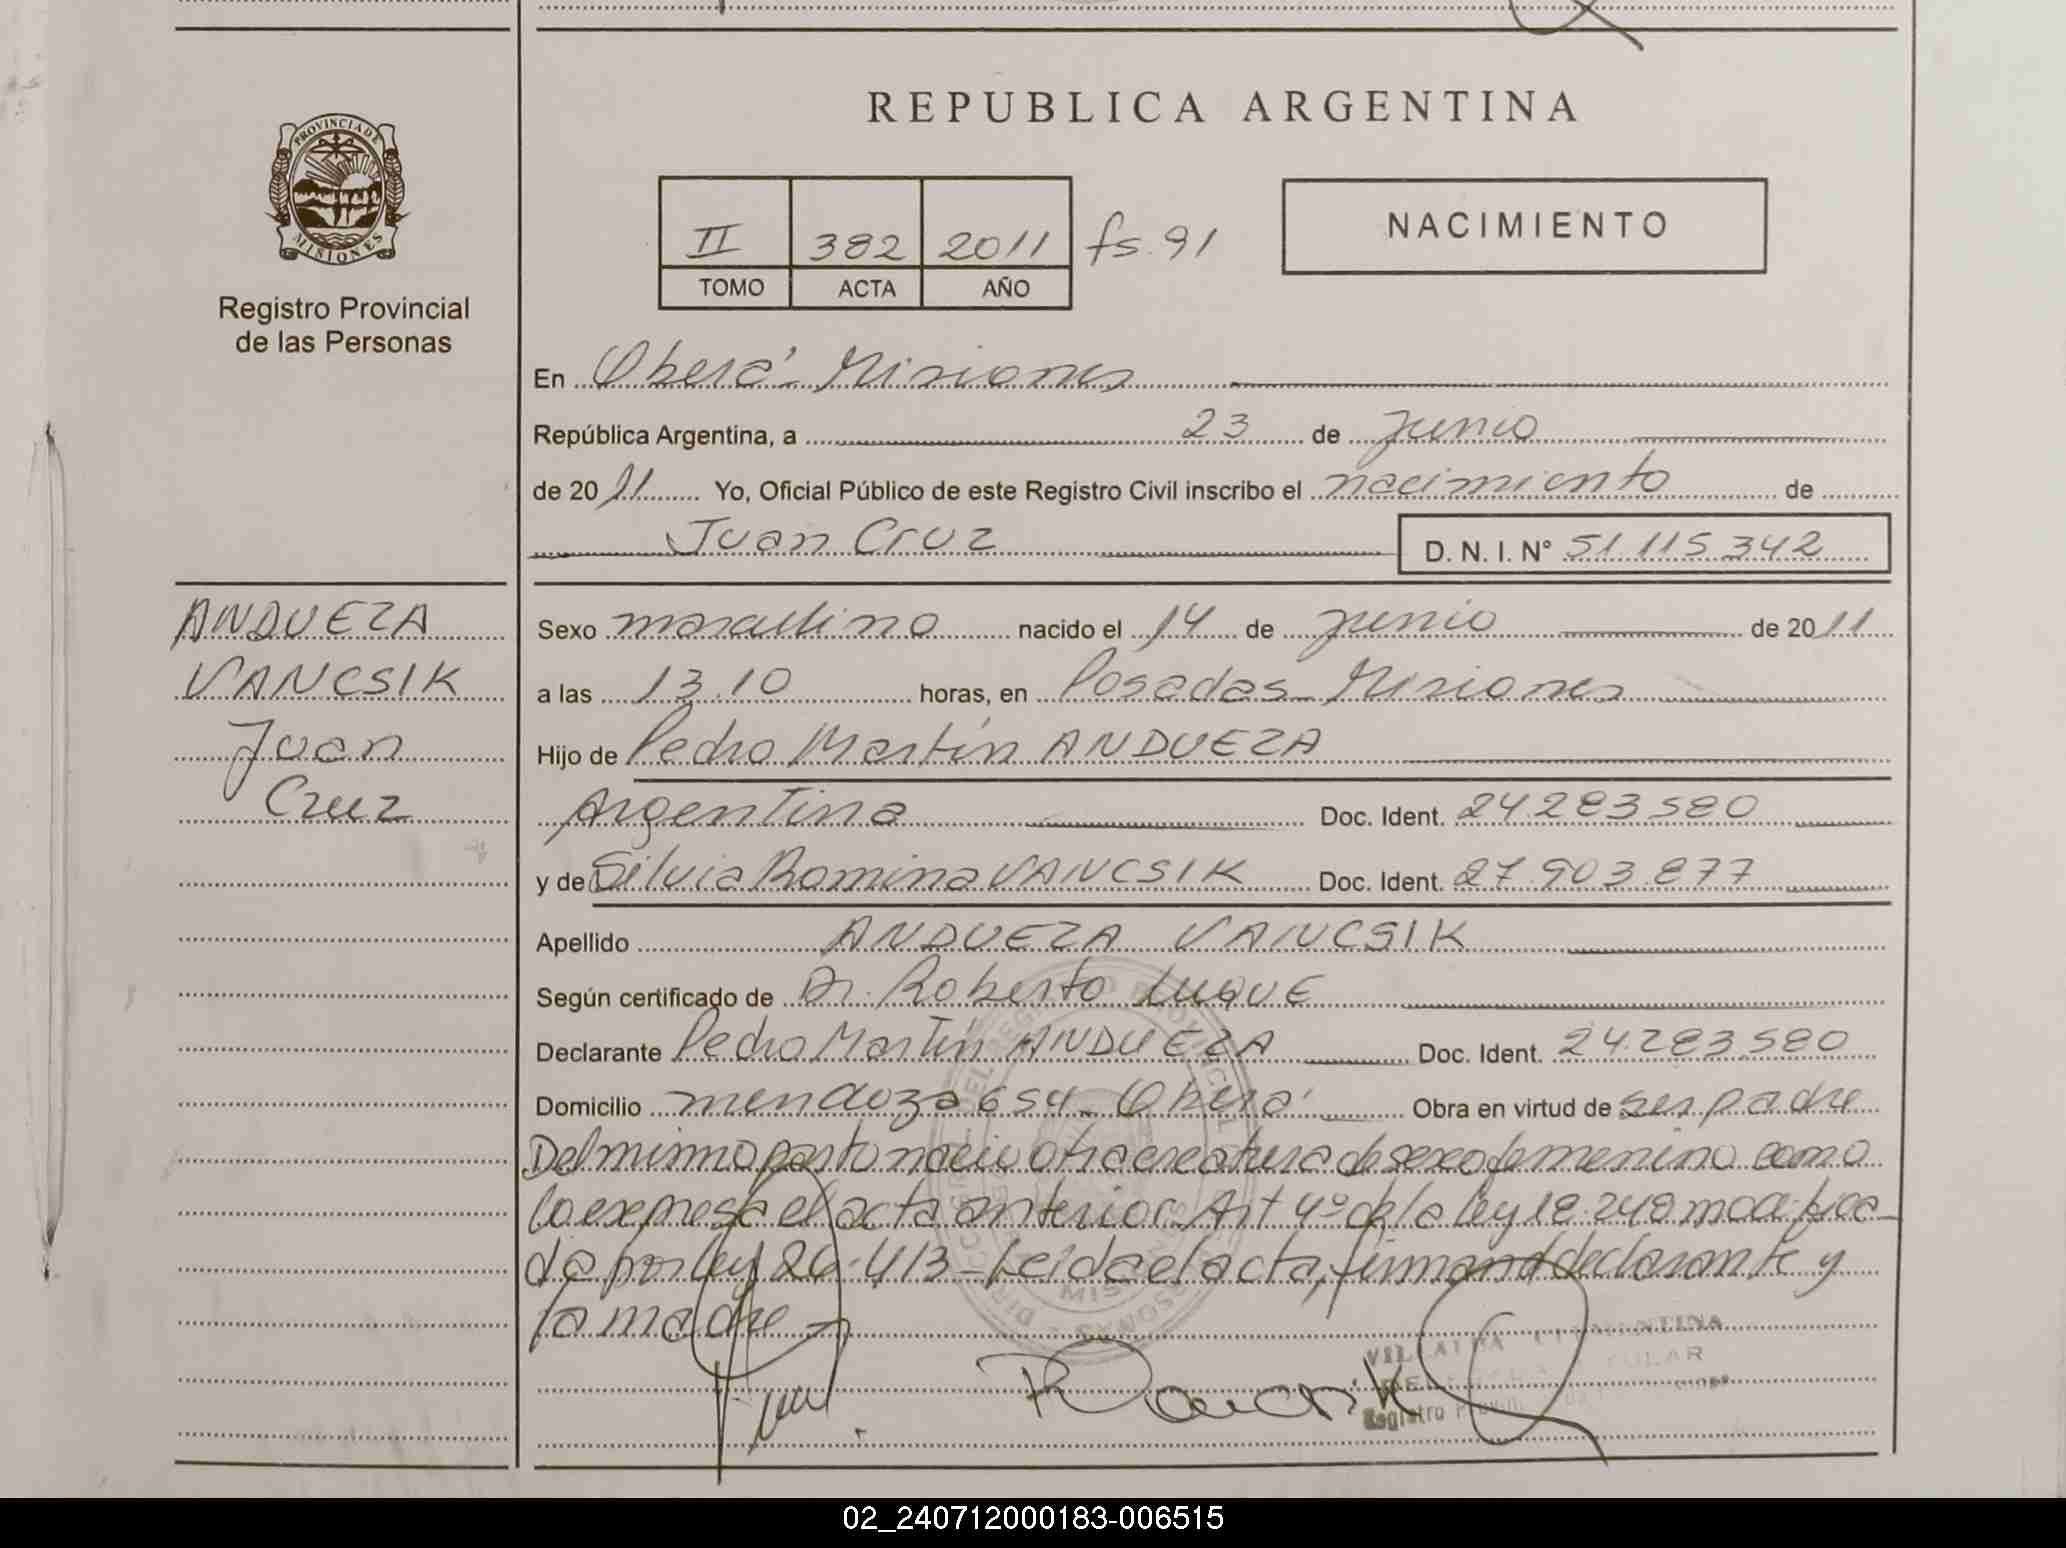 REPUBLICA ARGENTINA
PROVINCIA DE
MISIONES
Registro Provincial
de las Personas
II 382 2011 fs. 91
TOMO ACTA AÑO
NACIMIENTO
En Oberá - Misiones
República Argentina, a 23 de junio
de 2011 Yo, Oficial Público de este Registro Civil inscribo el nacimiento de
Juan Cruz D. N. I. N° 51.115.342
ANDUEZA
VANCSIK
Juan
Cruz
Sexo masculino nacido el 14 de junio de 2011
a las 13.10 horas, en Posadas - Misiones
Hijo de Pedro Martín ANDUEZA
Argentina Doc. Ident. 24.283.580
y de Silvia Romina VANCSIK Doc. Ident. 27.903.877
Apellido ANDUEZA VANCSIK
Según certificado de Dr. Roberto LUQUE
Declarante Pedro Martín ANDUEZA Doc. Ident. 24.283.580
Domicilio mendoza 654 - Oberá Obra en virtud de ser padre
Del mismo parto nació otra creatura de sexo femenino como
lo expresa el acta anterior. Art 4º de la ley 18.248 modifica-
da por ley 26.413 - Leida el acta, firman el declarante y
la madre
VILLALBA
TITULAR
Registro
MISIONES
02_240712000183-006515